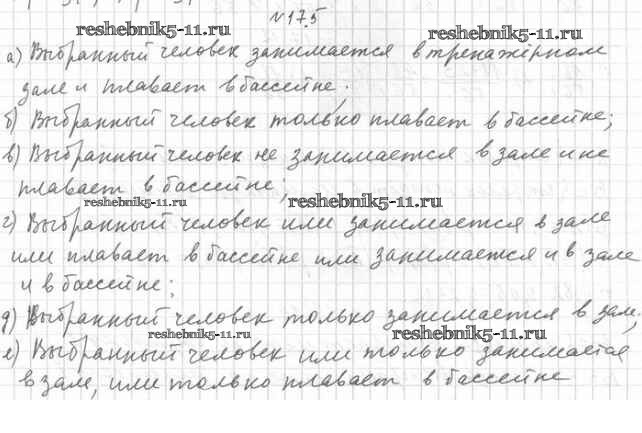 №17.5
reshebnik5-11.ru reshebnik5-11.ru
а) Выбранный человек занимается в тренажёрном
зале и плавает в бассейне;
б) Выбранный человек только плавает в бассейне;
в) Выбранный человек не занимается в зале и не
плавает в бассейне;
reshebnik5-11.ru reshebnik5-11.ru
г) Выбранный человек или занимается в зале
или плавает в бассейне или занимается и в зале
и в бассейне;
д) Выбранный человек только занимается в зале;
reshebnik5-11.ru reshebnik5-11.ru
е) Выбранный человек или только занимается
в зале, или только плавает в бассейне